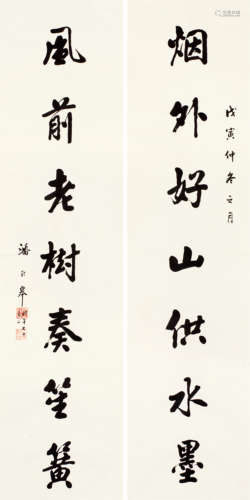 戊寅仲冬之月
烟外好山供水墨
風前老樹奏笙簧
潘齡皋